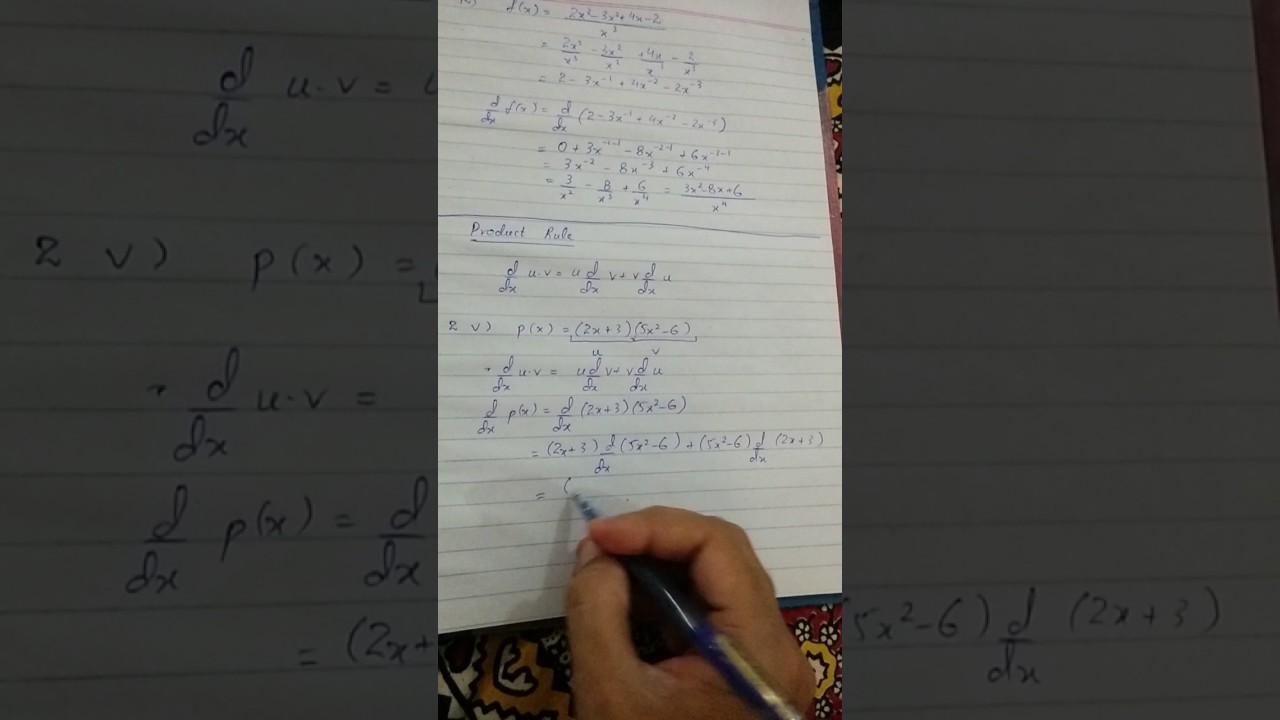 f(x) = 2x² - 3x² + 4x - 2 / x³
= 2x³/x³ - 3x²/x³ + 4x/x³ - 2/x³
= 2 - 3x⁻¹ + 4x⁻² - 2x⁻³
d/dx f(x) = d/dx (2 - 3x⁻¹ + 4x⁻² - 2x⁻³)
= 0 + 3x⁻¹⁻¹ - 8x⁻²⁻¹ + 6x⁻³⁻¹
= 3x⁻² - 8x⁻³ + 6x⁻⁴
= 3/x² - 8/x³ + 6/x⁴ = 3x² - 8x + 6 / x⁴
Product Rule
d/dx u·v = u d/dx v + v d/dx u
2 v) p(x) = (2x+3)(5x²-6)
u v
d/dx u·v = u d/dx v + v d/dx u
d/dx p(x) = d/dx (2x+3)(5x²-6)
= (2x+3) d/dx (5x²-6) + (5x²-6) d/dx (2x+3)
= (